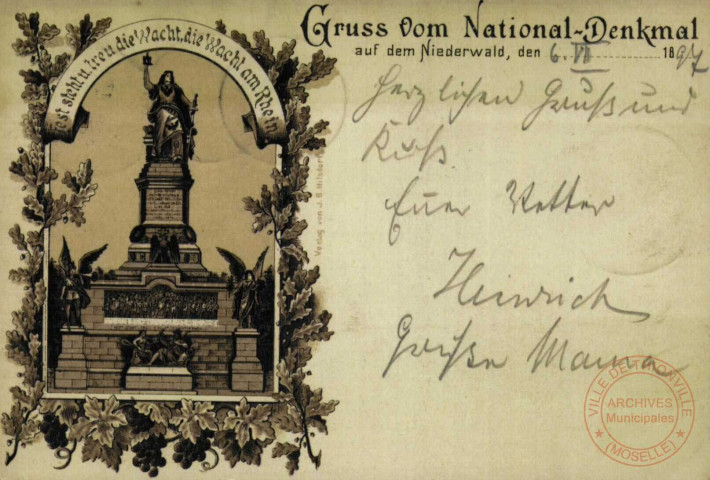 Fest steht u. treu die Wacht, die Wacht am Rhein
Gruss vom National-Denkmal
auf dem Niederwald, den 6. VII 1897
Herzlichen Gruß und
Kuß.
Euer Vetter
Heinrich
Grüße Mama
Verlag von J. B. Hilsdorf
VILLE DE THIONVILLE
ARCHIVES
Municipales
(MOSELLE)